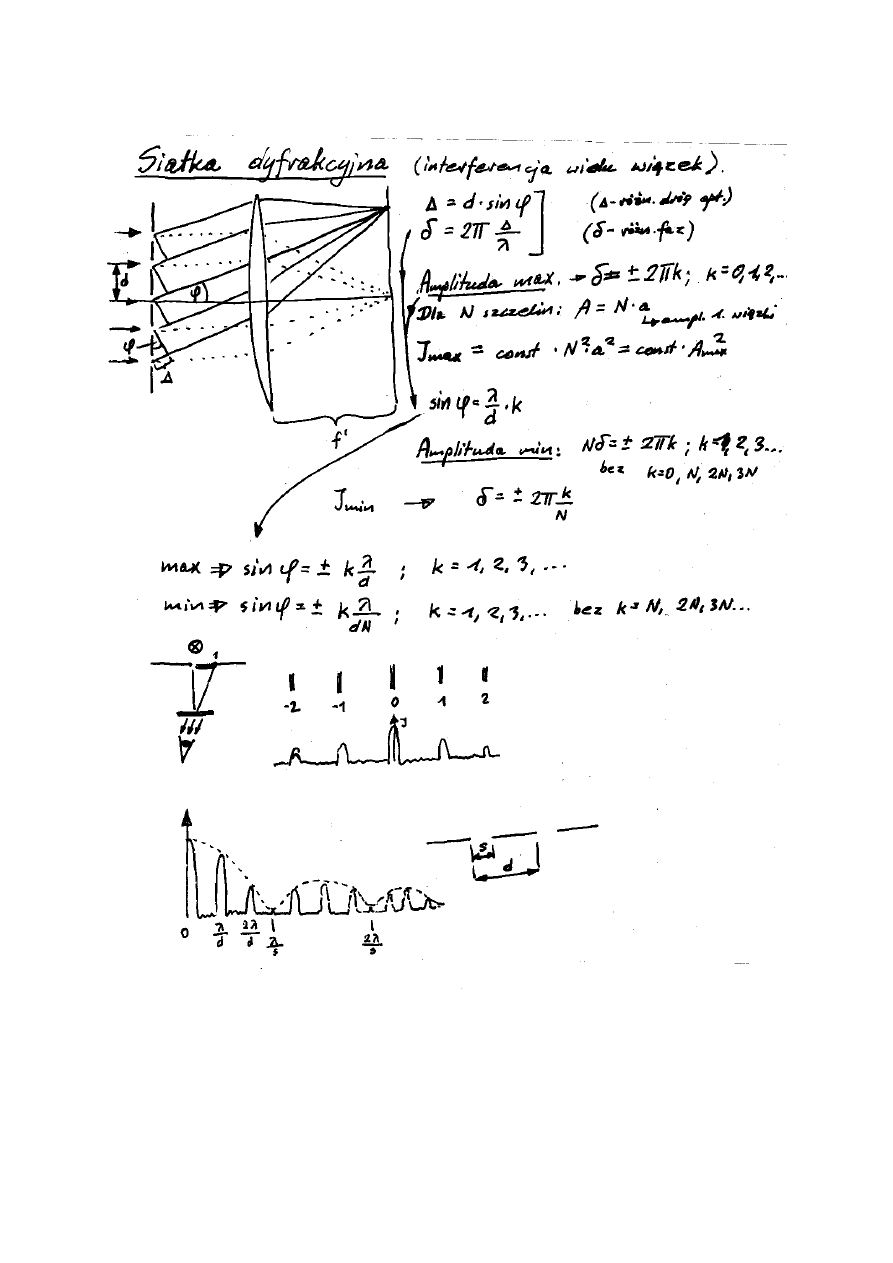 Siatka dyfrakcyjna (interferencja wielu wiązek).
Δ = d·sin φ (Δ-różn. dróg opt.)
δ = 2π Δ/λ (δ- różn. faz)
d
φ
φ
Δ
f'
Amplituda max. → δ= ± 2πk; k=0,1,2,...
Dla N szczelin: A = N·a
↳ ampl. 1. wiązki
Jmax = const · N²·a² = const · Amax²
sin φ = λ/d ·k
Amplituda min: Nδ = ± 2πk; k=1, 2, 3...
bez k=0, N, 2N, 3N
Jmin → δ = ± 2π k/N
max ⇒ sin φ = ± k λ/d ; k = 1, 2, 3, ...
min ⇒ sin φ = ± k λ/dN ; k = 1, 2, 3,... bez k = N, 2N, 3N...
1
-2 -1 0 1 2
J
s
d
0 λ/d 2λ/d λ/s 2λ/s